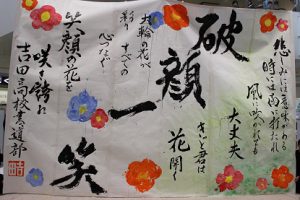 悲しみには意味がある
時には雨に打たれ
風に吹かれても
大丈夫
きっと君は
花開く
破顔一笑
大輪の花が
彩り すべての
心つなぐ
笑顔の花を
咲き誇れ
吉田高校書道部